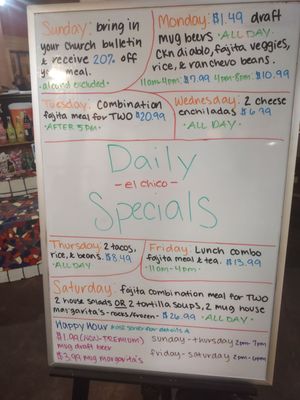 Sunday: bring in
your church bulletin
& receive 20% off
your meal.
·alcohol excluded·
Monday: $1.49 draft
mug beers ·ALL DAY·
Ckn diablo, fajita veggies,
rice, & ranchero beans.
11am-4pm: $7.99 4pm-8pm: $10.99
Tuesday: Combination
fajita meal for TWO $20.99
·AFTER 5PM·
Wednesday: 2 cheese
enchiladas $6.99
·ALL DAY·
Daily
-el chico-
Specials
Thursday: 2 tacos,
rice, & beans. $8.49
·ALL DAY
Friday: Lunch combo
fajita meal & tea. $13.99
·11am-4pm·
Saturday: fajita combination meal for TWO
2 house salads OR 2 tortilla soups, 2 mug house
margarita's-rocks/frozen- $26.99 ·ALL DAY·
Happy Hour *ask server for details*
$1.99 (NON-PREMIUM)
mug draft beer
$3.99 mug margarita's
sunday-thursday 2pm-7pm
friday-saturday 2pm-6pm